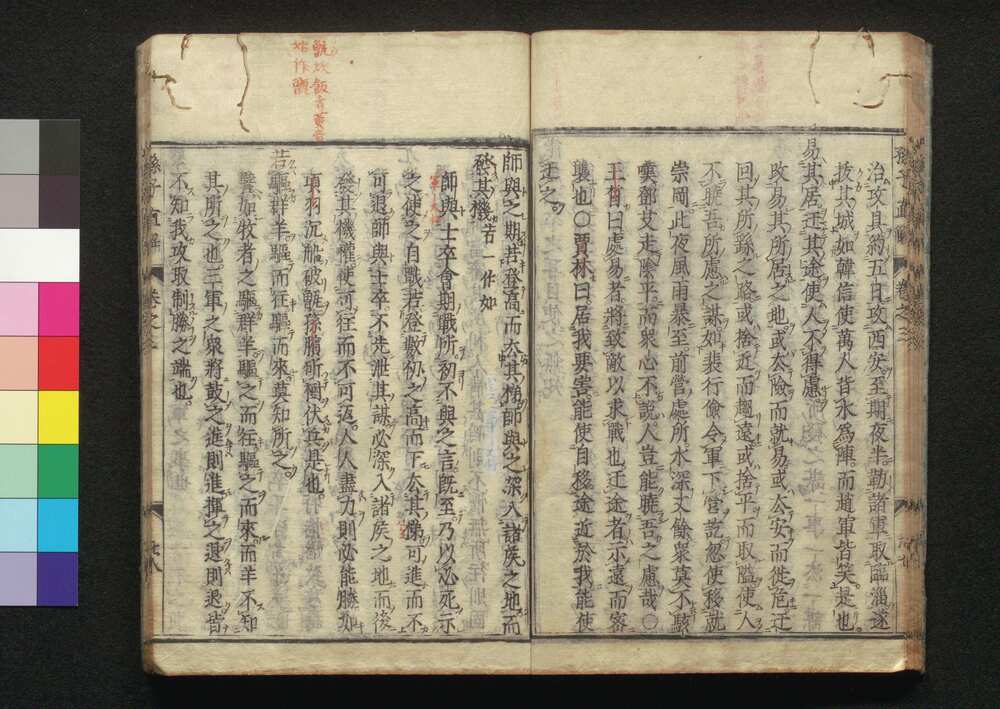 治攻具約五日攻西安至期夜半勒諸軍取臨淄遂
拔其城如韓信使萬人背水爲陣而趙軍皆笑是也
易其居迂其途使人不得慮
改易其所居之地或去險而就易或去安而從危迂
回其所縣之路或捨近而趨遠或捨平而取隘使人
不能吾所慮之謀如裴行儉令軍下營訖忽使移就
崇岡此夜風雨暴至前營處所水深丈餘衆莫不駭
嘆鄧艾走陰平而衆心不說人豈能曉吾之慮哉〇
王晳曰處易者將致敵以求戰也迂途者示遠而密
襲也〇賈林曰居我要害能使自移途近於我能使
迂之
師與之期若登高而去其梯師與之深入諸侯之地而
發其機若一作如
師與士卒會期戰所初不與之言旣至乃以必死示
之使之自戰若登數仞之高而下去其梯可進而不
可退師與士卒不先泄其謀必深入諸侯之地而後
發其機權使可往而不可返人人盡力則必能勝如
項羽沉船破甑孫臏斫樹伏兵是也
若驅群羊驅而往驅而來莫知所之
譬如牧者之驅群羊驅之而往驅之而來而羊不知
其所之也三軍之衆將鼓之進則進揮之退則退皆
不知我攻取制勝之端也
孫子直解
卷之三